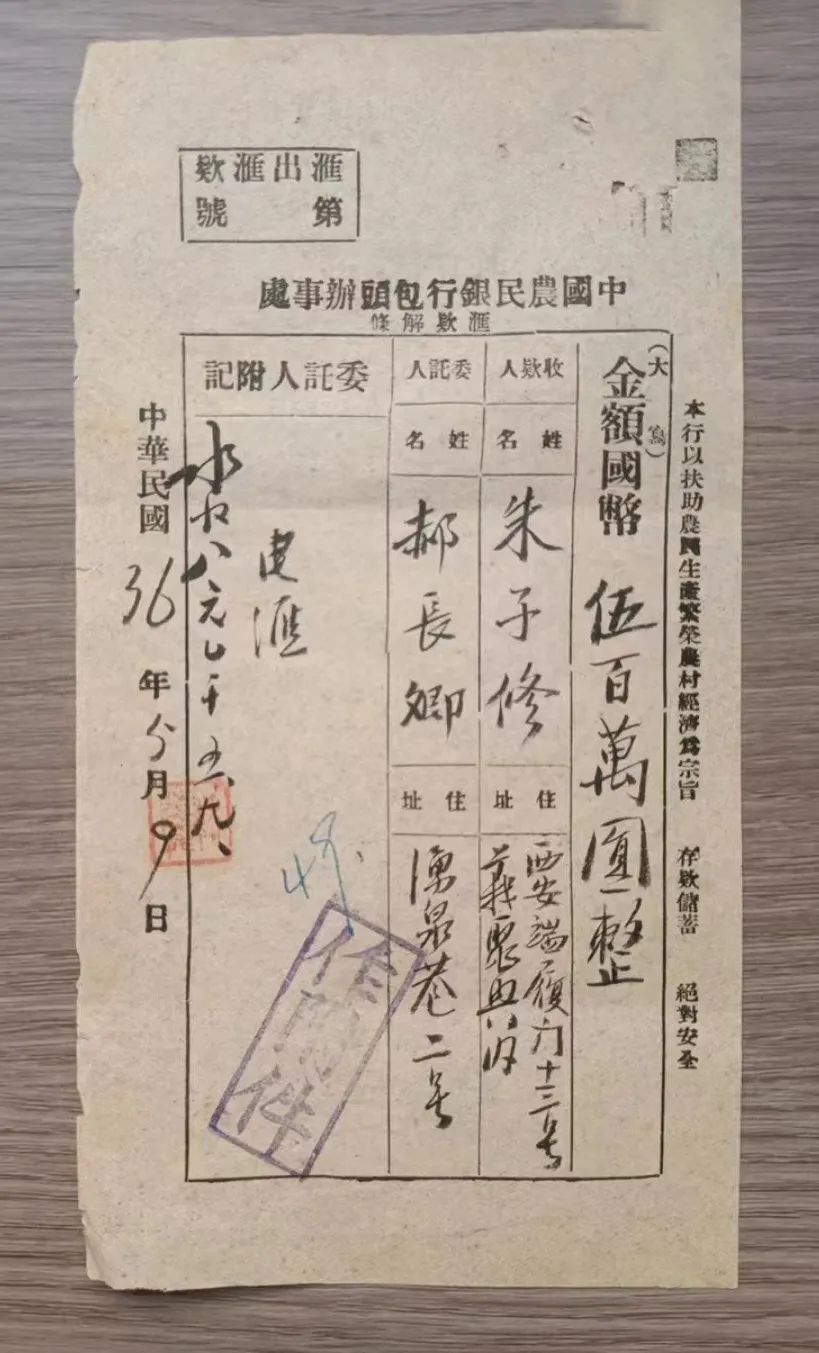 匯出匯欵
第 號
中國農民銀行包頭辦事處
匯欵解條
本行以扶助農民生產繁榮農村經濟爲宗旨 存欵儲蓄 絕對安全
(大寫)
金額國幣 伍百萬圓整
收欵人
姓名
朱子修
住址
西安端履门十三号
義聚興
委託人
姓名
郝長卿
住址
湧泉巷二号
委託人附記
電滙
作附件
中華民國36年 月9日